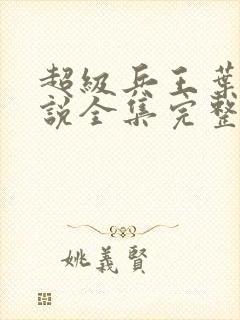 超級兵王葉
說全集完整
姚義賢